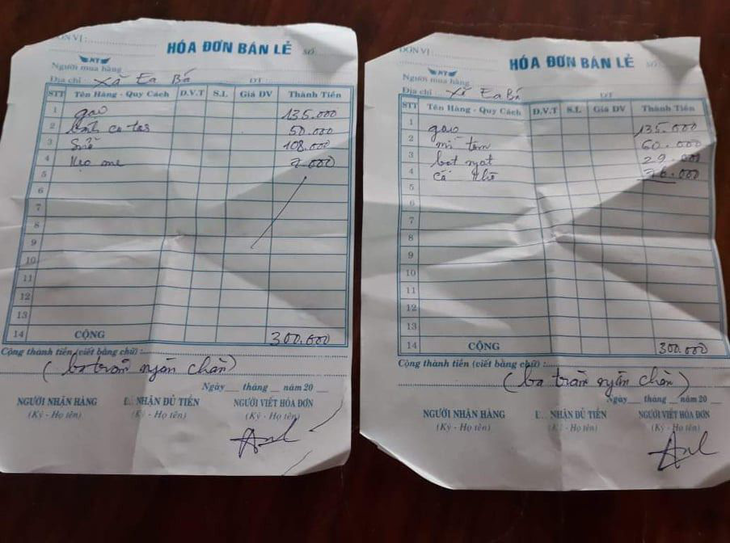 HÓA ĐƠN BÁN LẺ SỐ:
ĐƠN VỊ:
Người mua hàng
Địa chỉ: Xã Ea Bá ĐT
STT Tên Hàng - Quy Cách Đ.V.T S.L Giá ĐV Thành Tiền
1 gạo 135.000
2 50.000
3 Sữa 108.000
4 Kẹo me 7.000
5
6
7
8
9
10
11
12
13
14 CỘNG 300.000
Cộng thành tiền (viết bằng chữ):
(ba trăm ngàn chẵn)
Ngày tháng năm 20
NGƯỜI NHẬN HÀNG NHẬN ĐỦ TIỀN NGƯỜI VIẾT HÓA ĐƠN
(Ký - Họ tên) (Ký - Họ tên)
ĐƠN VỊ:
HÓA ĐƠN BÁN LẺ SỐ
Người mua hàng
Địa chỉ: Xã Ea Bá ĐT
STT Tên Hàng - Quy Cách Đ.V.T S.L Giá ĐV Thành Tiền
1 gạo 135.000
2 mì tôm 60.000
3 bột ngọt 29.000
4 cá khô 76.000
5
6
7
8
9
10
11
12
13
14 CỘNG 300.000
Cộng thành tiền (viết bằng chữ):
(ba trăm ngàn chẵn)
Ngày tháng năm 20
NGƯỜI NHẬN HÀNG NHẬN ĐỦ TIỀN NGƯỜI VIẾT HÓA ĐƠN
(Ký - Họ tên) (Ký - Họ tên)